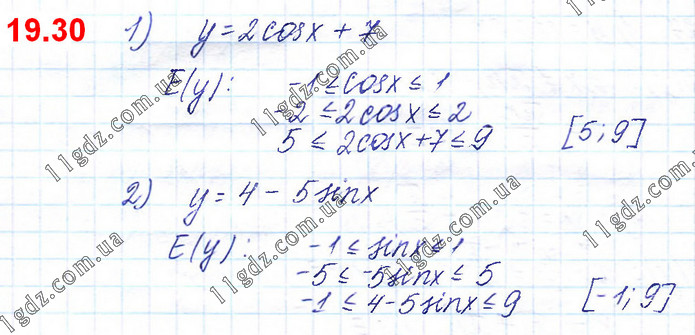 19.30 1) y = 2cosx + 7
E(y): -1 ≤ cosx ≤ 1
-2 ≤ 2cosx ≤ 2
5 ≤ 2cosx+7 ≤ 9 [5; 9]
2) y = 4 - 5sinx
E(y): -1 ≤ sinx ≤ 1
-5 ≤ -5sinx ≤ 5
-1 ≤ 4-5sinx ≤ 9 [-1; 9]
11gdz.com.ua
11gdz.com.ua
11gdz.com.ua
11gdz.com.ua
11gdz.com.ua
11gdz.com.ua